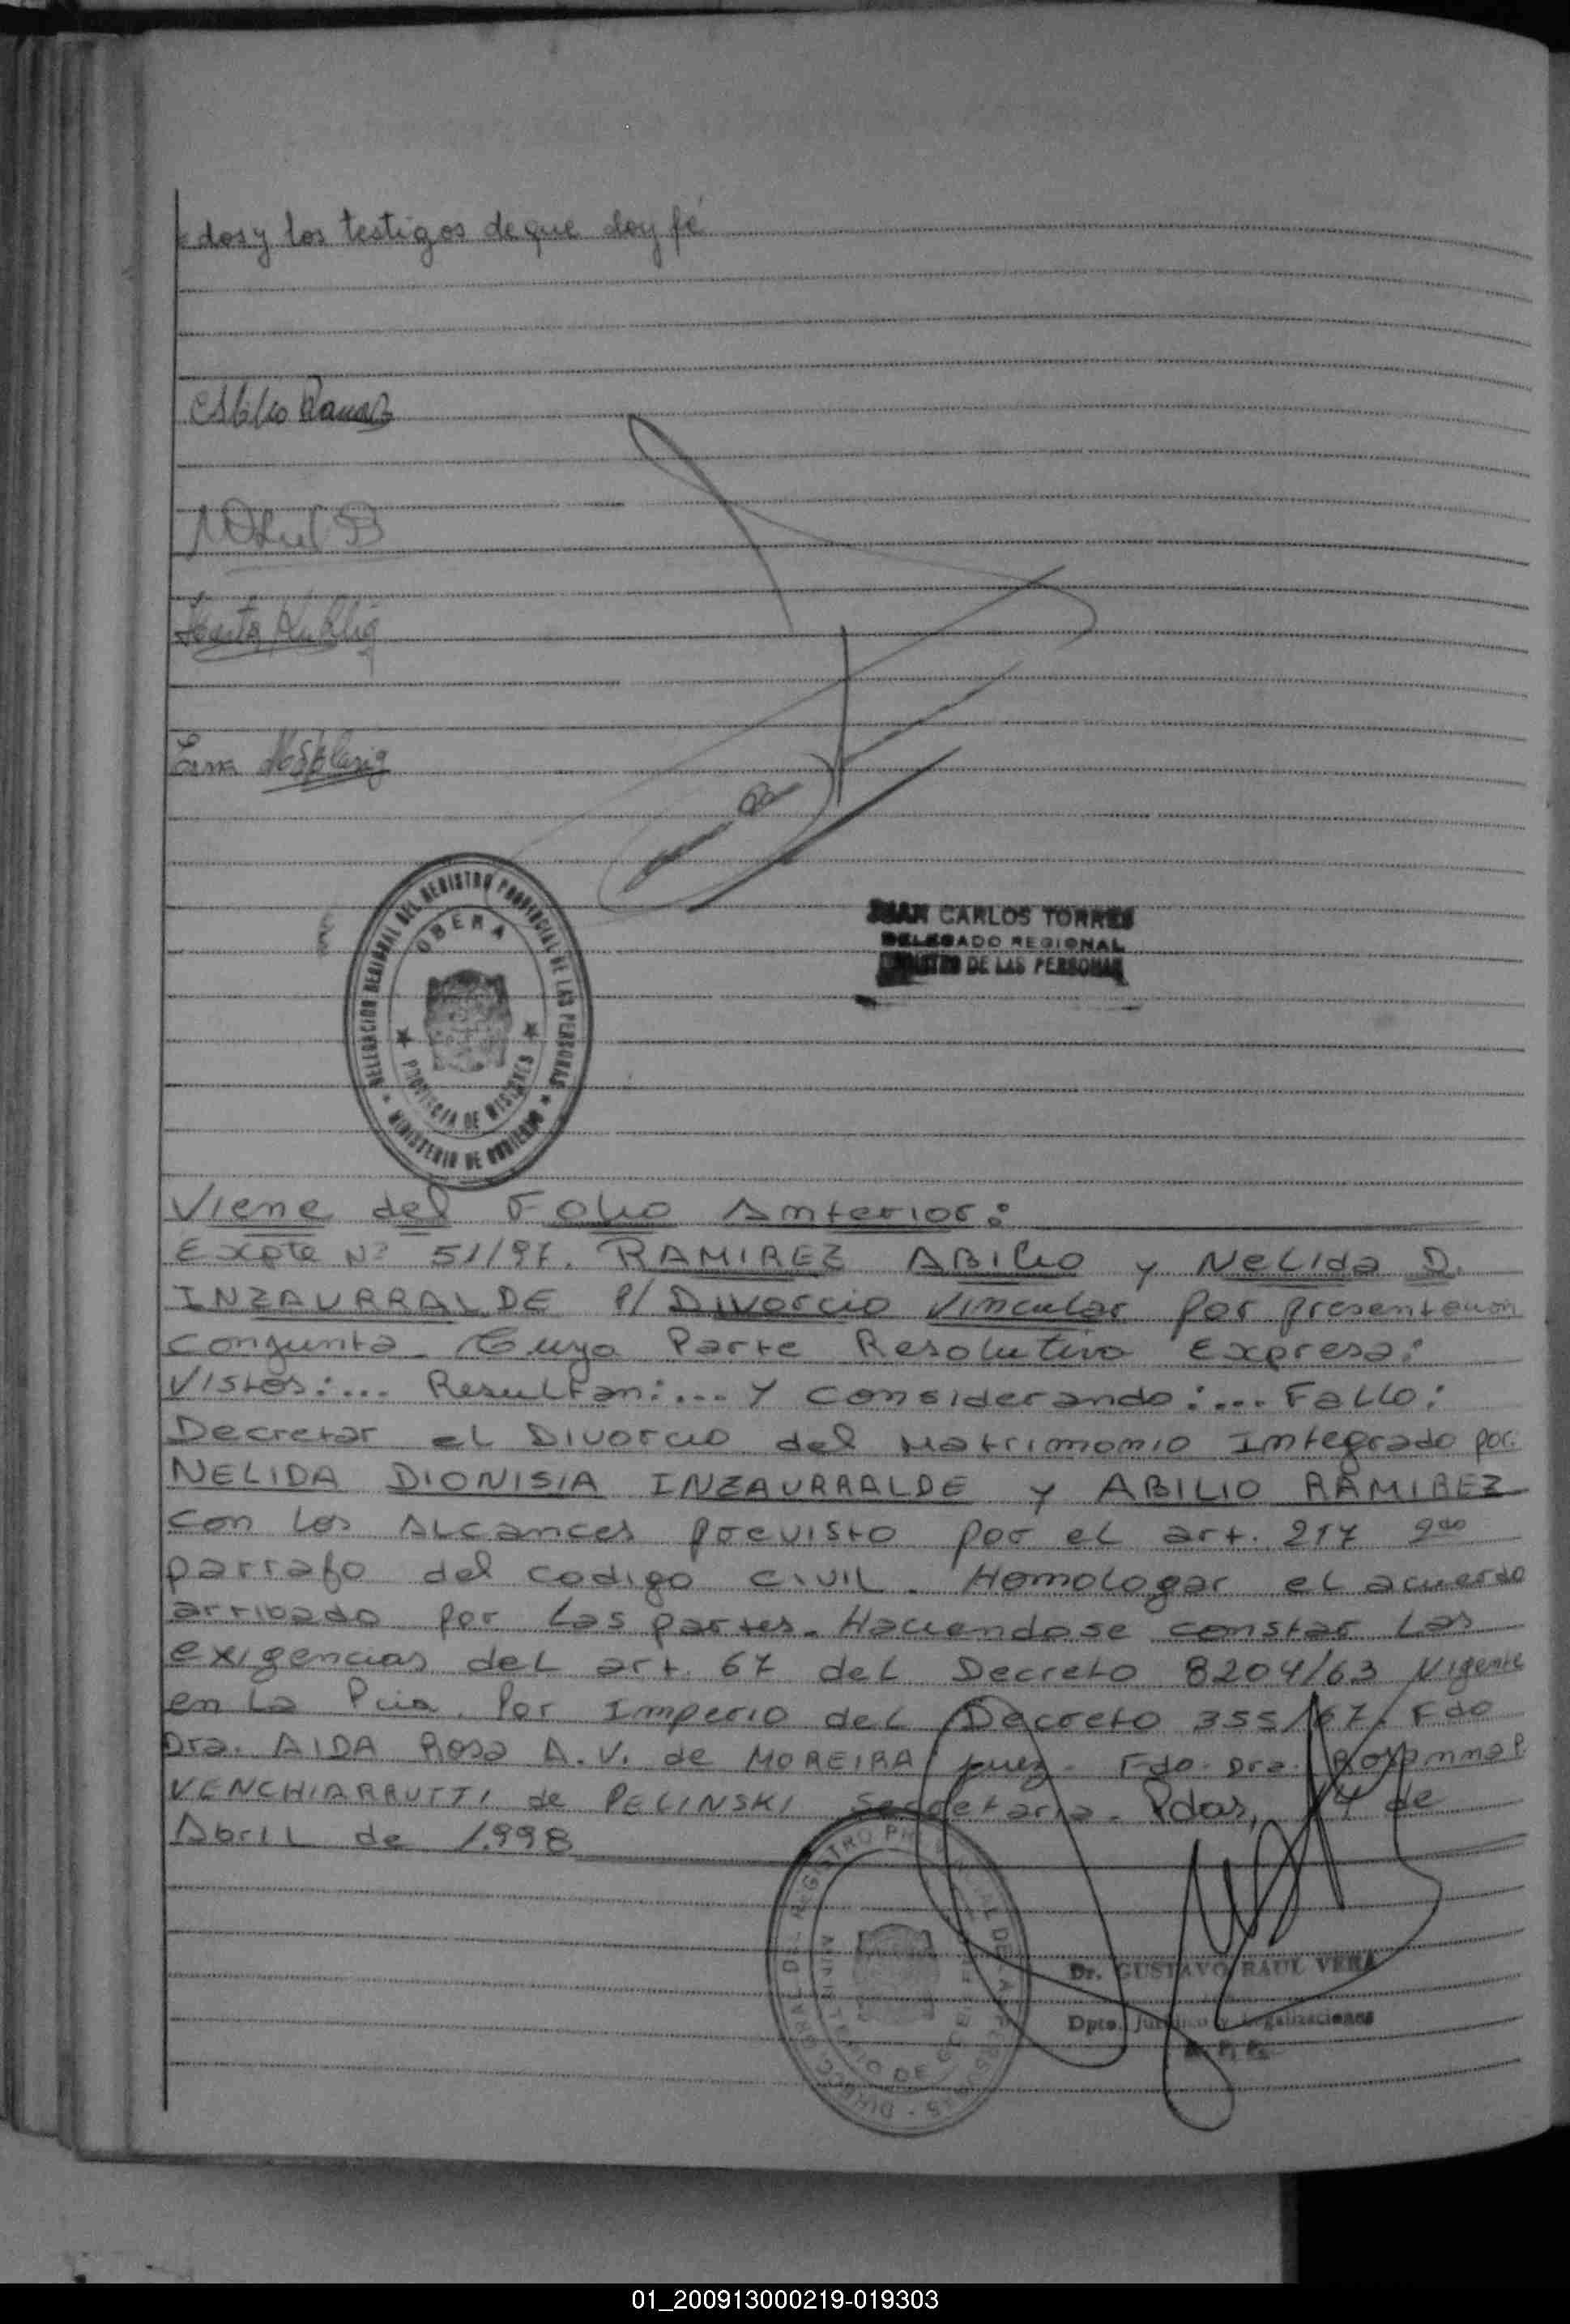 dos y los testigos de que doy fé
Abilio Ramirez
DELEGACION REGIONAL DEL REGISTRO PROVINCIAL DE LAS PERSONAS
OBERA
PROVINCIA DE MISIONES
MINISTERIO DE GOBIERNO
JUAN CARLOS TORRES
DELEGADO REGIONAL
REGISTRO DE LAS PERSONAS
Viene del Folio Anterior:
Expte Nº 51/97. RAMIREZ ABILIO y NELIDA D.
INZAURRALDE P/ Divorcio Vincular por presentación
conjunta. Cuya Parte Resolutiva Expresa:
Vistos:... Resultan:... Y Considerando:... Fallo:
Decretar el Divorcio del Matrimonio Integrado por:
NELIDA DIONISIA INZAURRALDE y ABILIO RAMIREZ
con los Alcances previsto por el art. 217 2do
parrafo del codigo civil. Homologar el acuerdo
arribado por las partes. Haciendose constar las
exigencias del art. 67 del Decreto 8204/63 Vigente
en la Pcia. Por Imperio del Decreto 355/67. Fdo
Dra. AIDA Rosa A.V. de MOREIRA Juez. Fdo. Dra. Rosanna P.
VENCHIARRUTTI de PELINSKI Secretaria. Pdas, 14 de
Abril de 1.998
Dr. GUSTAVO RAUL VERA
Dpto. Jurídico y Legalizaciones
R. P. P.